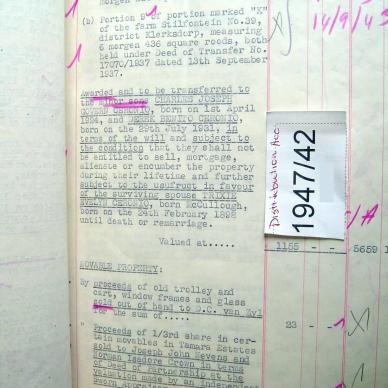 (b) Portion 5 of portion marked "K"
of the farm Stilfontein No.39,
district Klerksdorp, measuring
6 morgen 436 square roods, both
held under Deed of Transfer No.
17070/1937 dated 13th September
1937.
14/9/43
Awarded and to be transferred to
the minor sons CHARLES JOSEPH
CHRONIO, born on 1st April
1924, and DEREK BENITO CHRONIO,
born on the 29th July 1931, in
terms of the will and subject to
the condition that they shall not
be entitled to sell, mortgage,
alienate or encumber the property
during their lifetime and further
subject to the usufruct in favour
of the surviving spouse TRIXIE
EVELYN CHRONIO, born McCullough,
born on the 24th February 1898
until death or remarriage.
Distribution Acc.
1947/42
Valued at..... 1155 - - 5659 1
MOVABLE PROPERTY:
By proceeds of old trolley and
cart, window frames and glass
sold out of hand to D.C. van Zyl
for the sum of..... 23 - -
" Proceeds of 1/3rd share in cer-
tain movables in Tamara Estates
sold to Joseph John Nevens and
Norman Isadore Crown in terms
of Deed of Partnership at the
valuation made by an independent
sworn